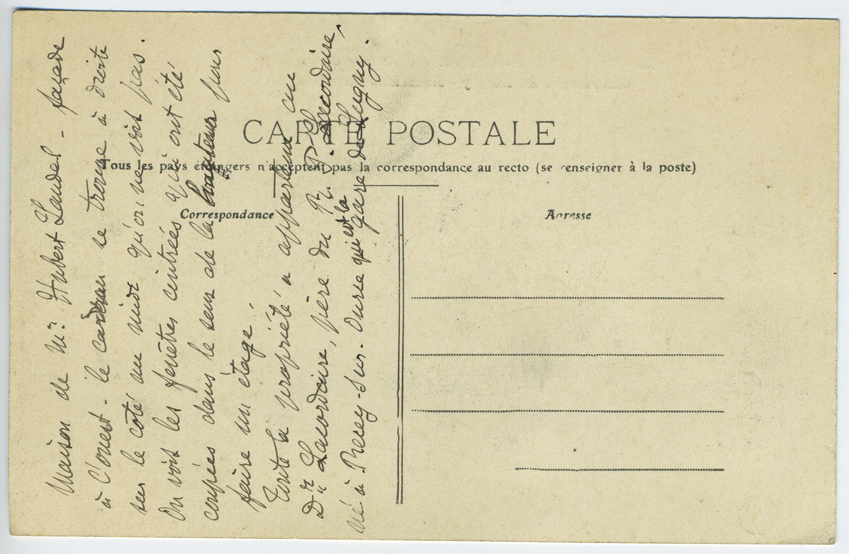 CARTE POSTALE
Tous les pays étrangers n'acceptent pas la correspondance au recto (se renseigner à la poste)
Correspondance
Adresse
Maison de Mr Hubert Landel - façade
à l'ouest - le cadran se trouve à droite
sur le côté au midi qu'on ne voit pas.
On voit les fenêtres cintrées qui ont été
coupées dans le sens de la hauteur pour
faire un étage.
Toute la propriété a appartenu au
Dr Lacordaire, père du R. P. Lacordaire,
né à Recey-sur-Ource qui est la gare de Lugny.